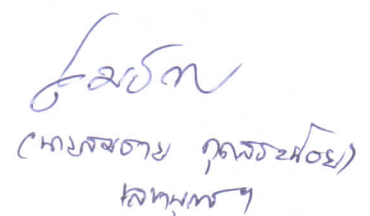 (นายสมชาย กุดสระน้อย)
เลขานุการฯ